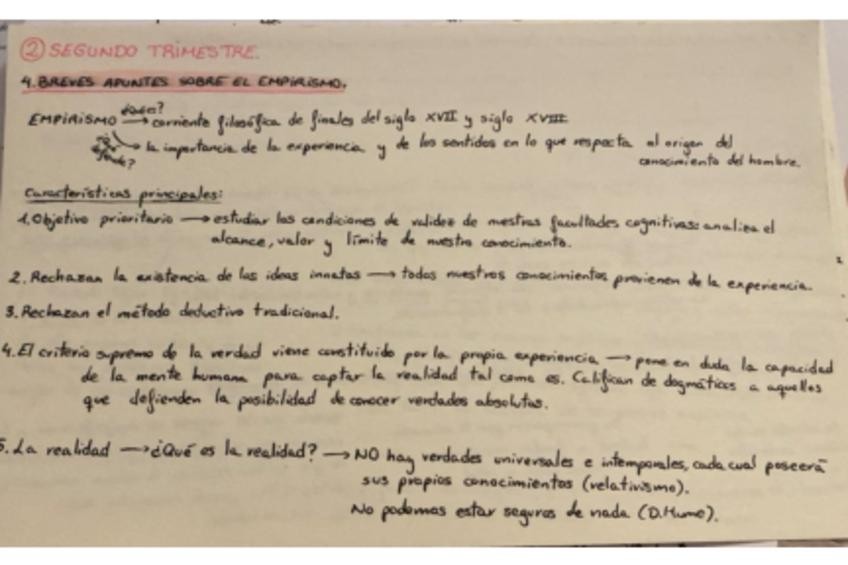 ② SEGUNDO TRIMESTRE.
4. BREVES APUNTES SOBRE EL EMPIRISMO.
EMPIRISMO → corriente filosófica de finales del siglo XVII y siglo XVIII
→ la importancia de la experiencia y de los sentidos en lo que respecta al origen del
conocimiento del hombre.
Características principales:
1. Objetivo prioritario → estudiar las condiciones de validez de nuestras facultades cognitivas: analiza el
alcance, valor y límite de nuestro conocimiento.
2. Rechazan la existencia de las ideas innatas → todos nuestros conocimientos provienen de la experiencia.
3. Rechazan el método deductivo tradicional.
4. El criterio supremo de la verdad viene constituido por la propia experiencia → pone en duda la capacidad
de la mente humana para captar la realidad tal como es. Califican de dogmáticos a aquellos
que defienden la posibilidad de conocer verdades absolutas.
5. La realidad → ¿Qué es la realidad? → NO hay verdades universales e intemporales, cada cual poseerá
sus propios conocimientos (relativismo).
No podemos estar seguros de nada (D. Hume).